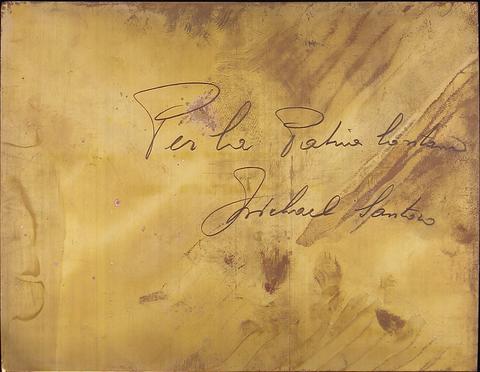 Per la Patria lontana
Michael Santoro